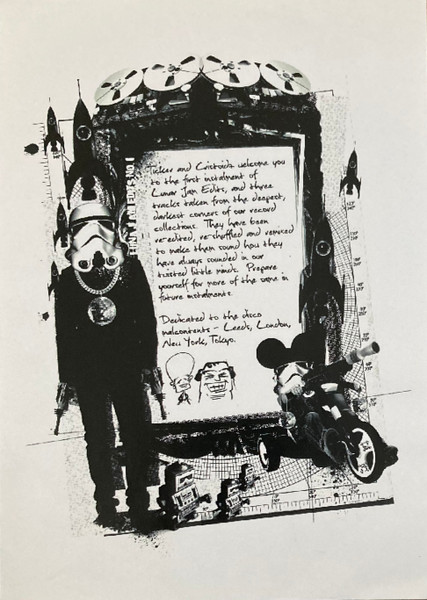 Tinker and Cristoidz welcome you
to the first instalment of
Lunar Jam Edits, and three
tracks taken from the deepest,
darkest corners of our record
collections. They have been
re-edited, re-shuffled and remixed
to make them sound how they
have always sounded in our
twisted little minds. Prepare
yourself for more of the same in
future instalments.
Dedicated to the disco
malcontents - Leeds, London,
New York, Tokyo.